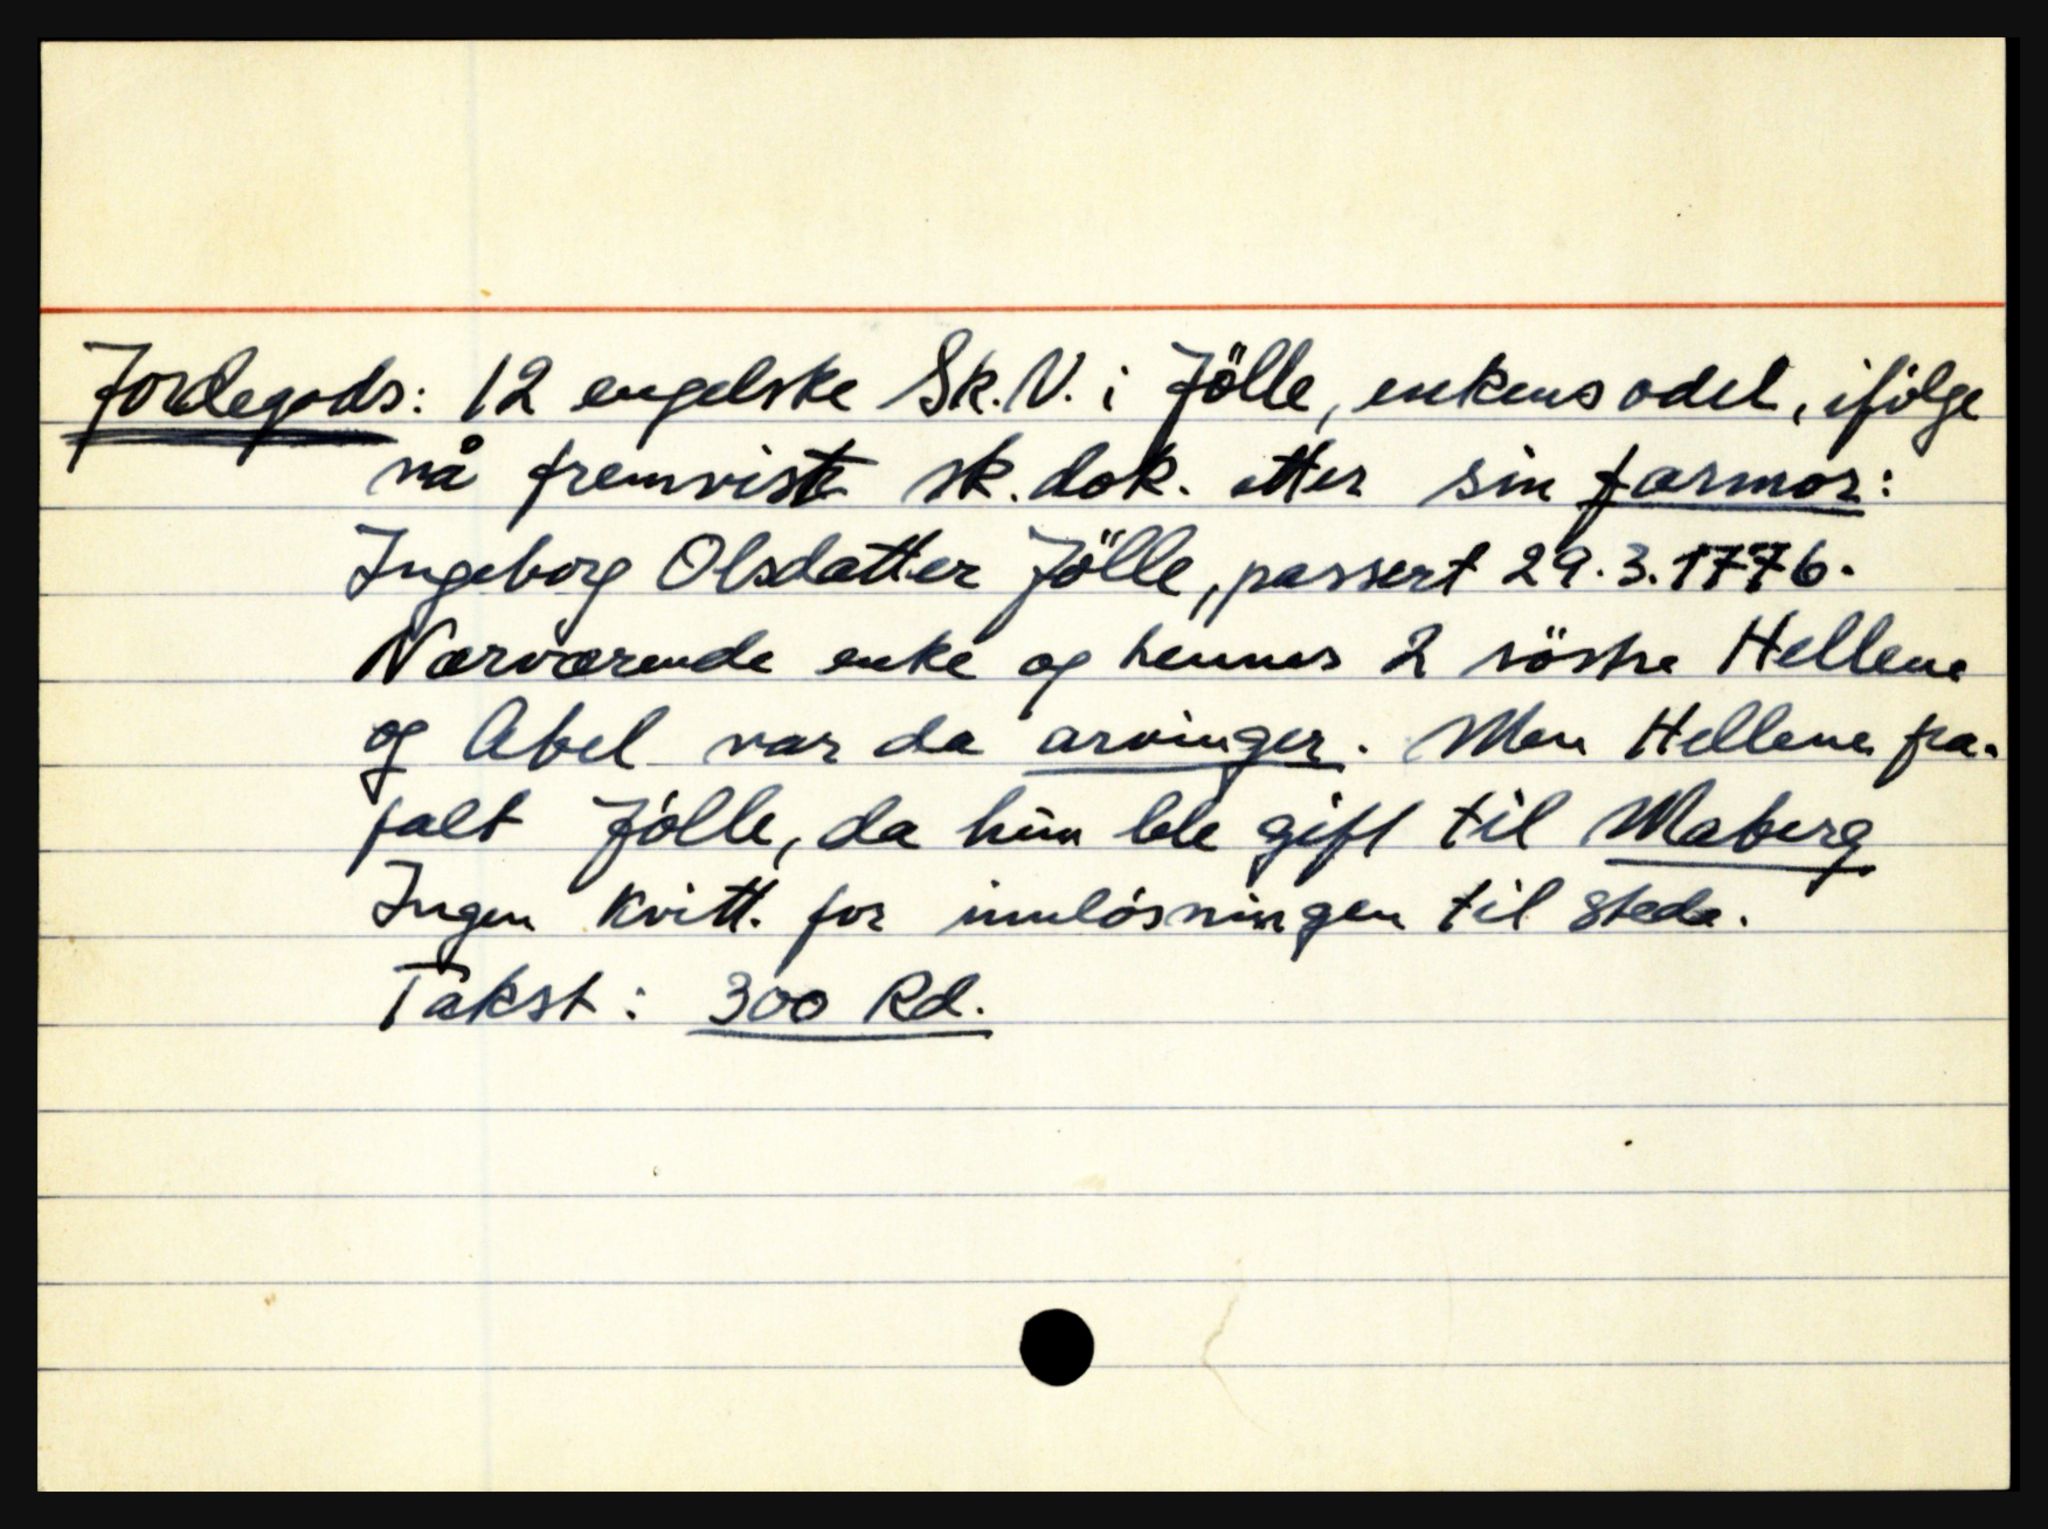 Jordegods: 12 engelske Sk. V. i Jölle, enkens odel, ifölge
nå fremviste sk. dok. etter sin farmor:
Ingeborg Olsdatter Jölle, passert 29.3.1776.
Nærværende enke og hennes 2 söstre Hellene
og Abel var da arvinger. Men Hellene fra-
falt Jölle, da hun ble gift til Maberg
Ingen kvitt. for innlösningen til stede.
Takst: 300 Rd.